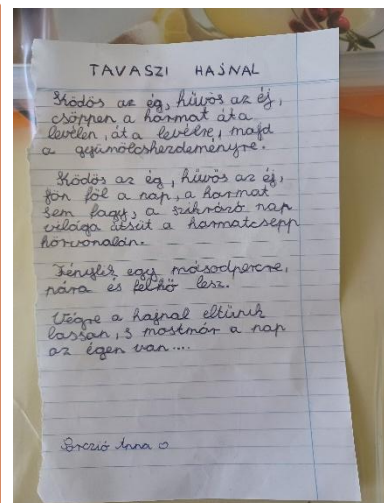 TAVASZI HAJNAL
Ködös az ég, hűvös az éj,
csöppen a harmat áta
levélen, áta levélre, majd
a gyümölcskezdeményre.
Ködös az ég, hűvös az éj,
jön föl a nap, a harmat
sem fagy, a szikrázó nap
világa átsüt a harmatcsepp
körvonalán.
Fénylik egy másodpercre,
pára és felhő lesz.
Végre a hajnal eltűnik
lassan, s mostmár a nap
az égen van....
Anna